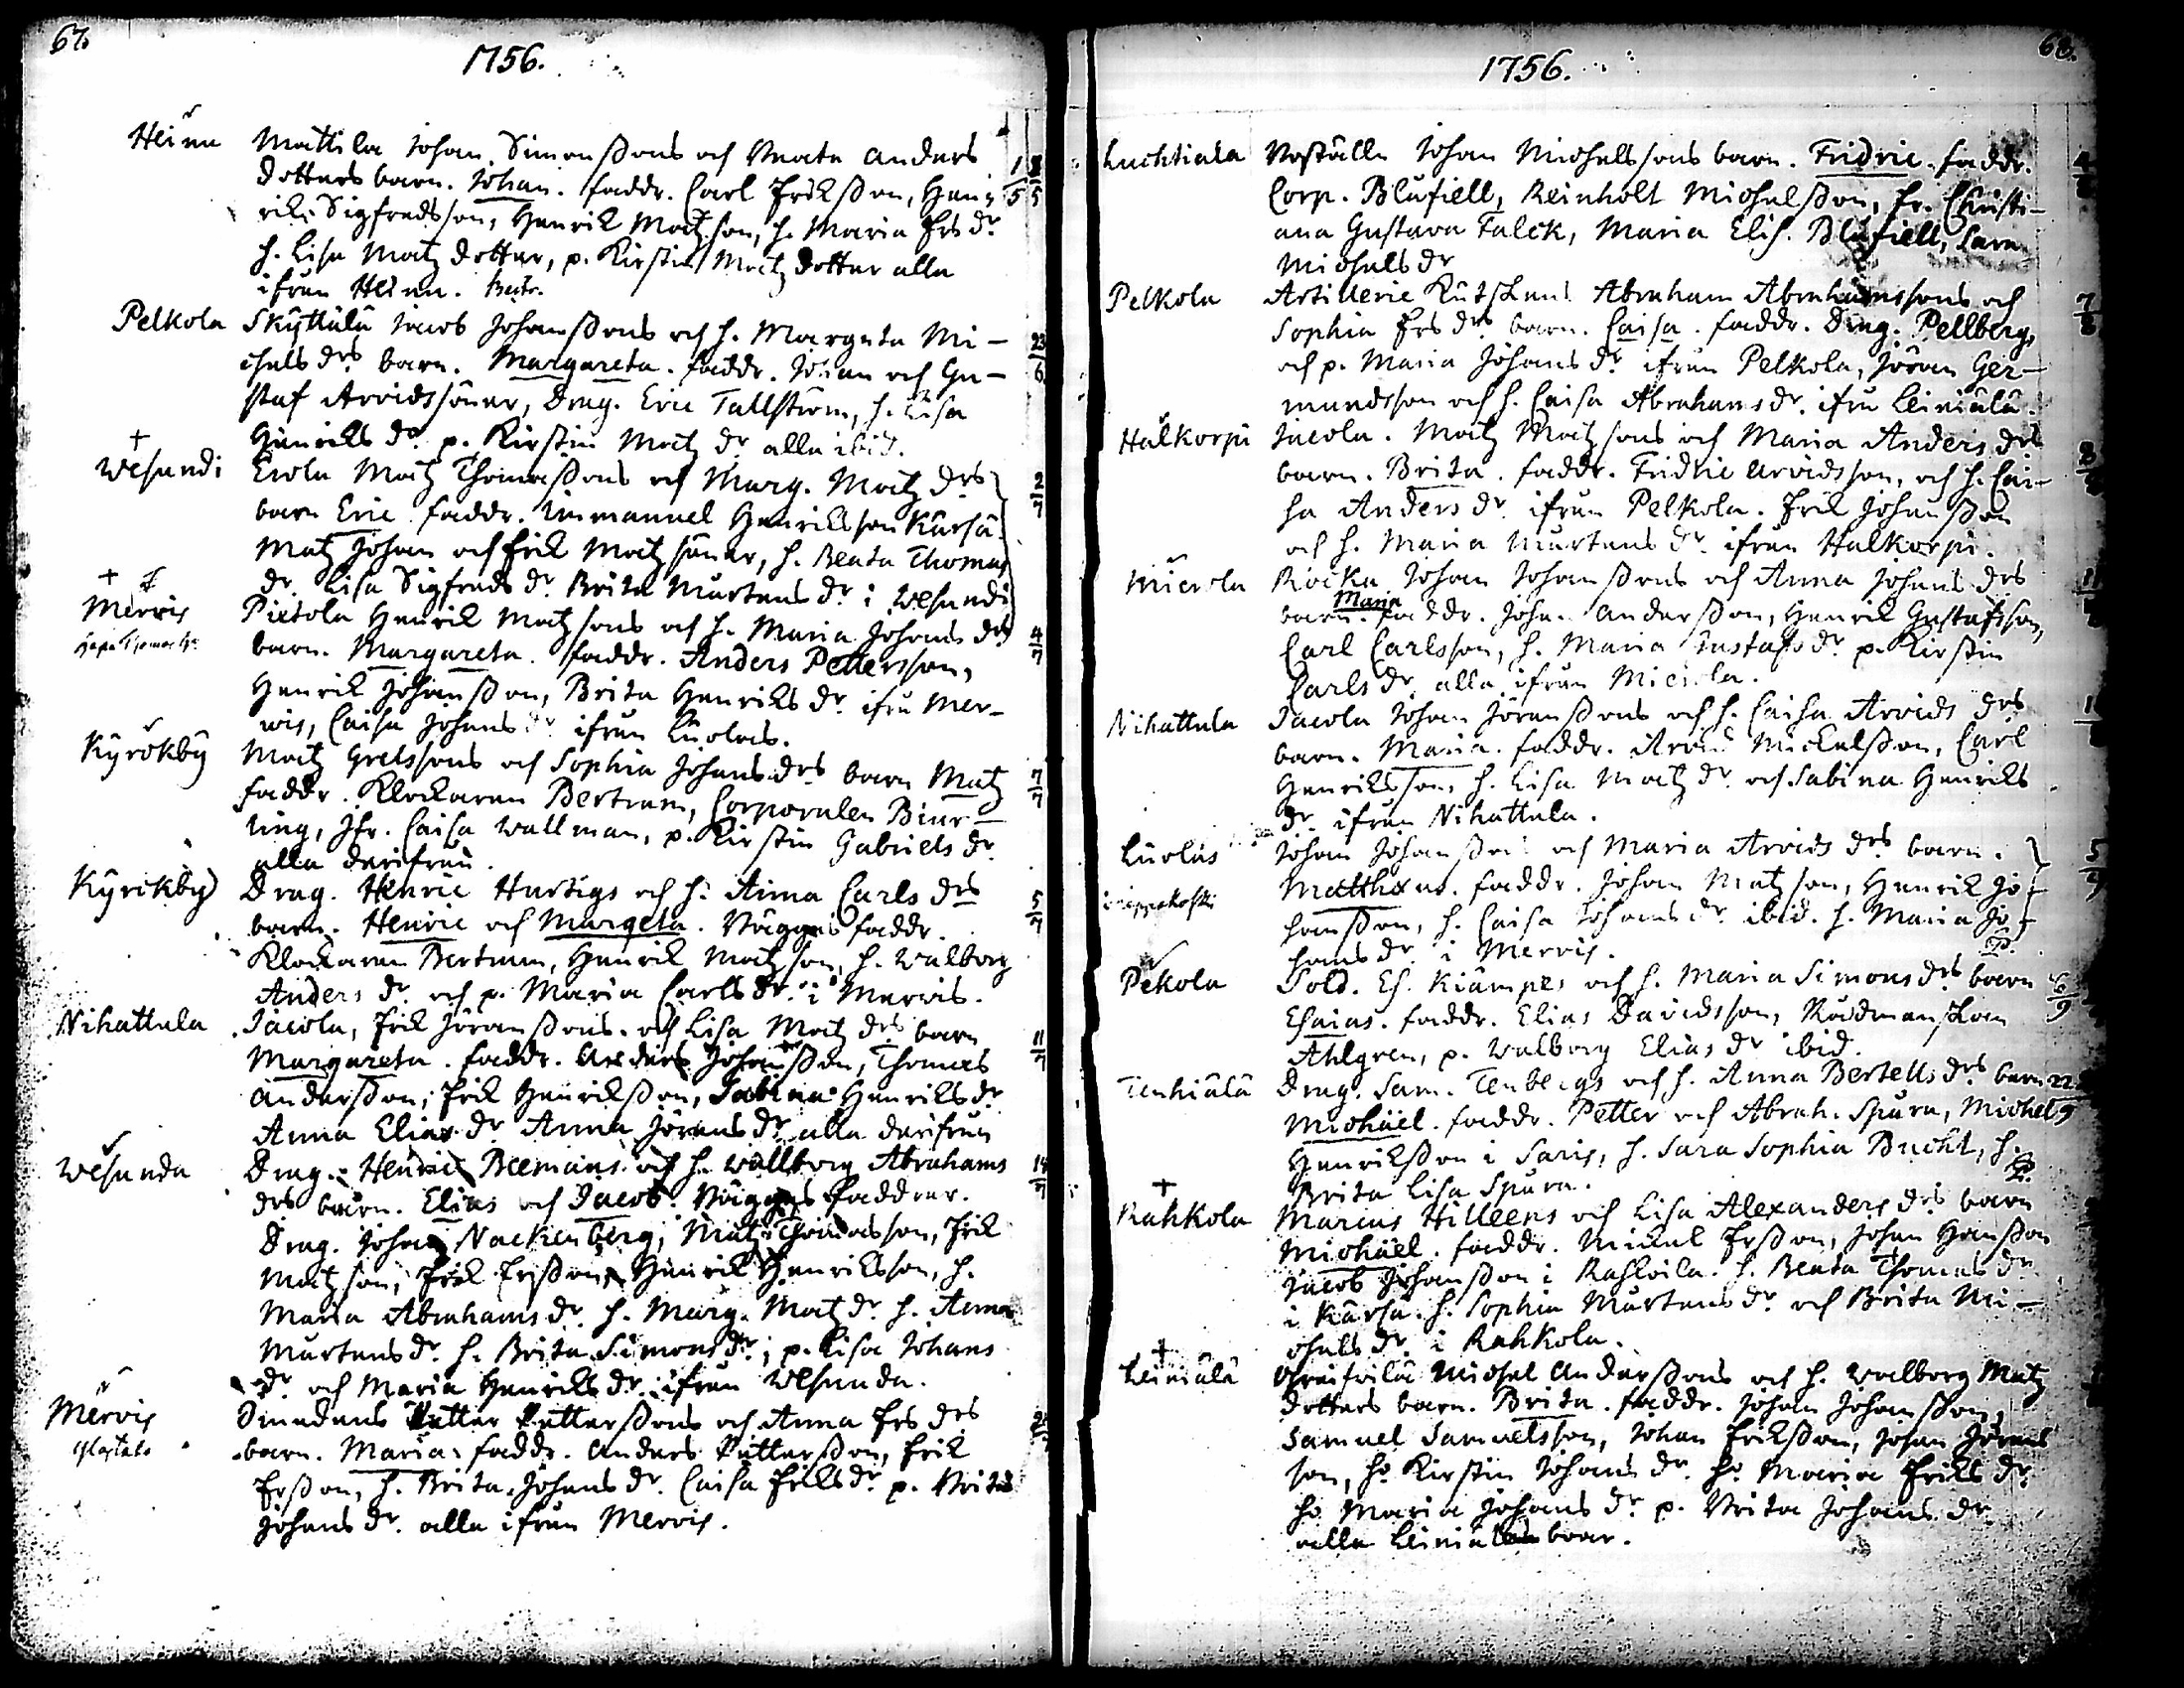 67.
1756.
Heinu Mattila Johan Simonssons och Beata Anders
dotters barn. Johan. faddr. Carl Erichsson, Hen-
rik Sigfredsson, Henrik Matzson, h. Maria Ers dr
h. Lisa Matz dotter, p. Kirstin Matz dotter alla
ifrån Heinu.
Pelkola Skyttälä Jacob Johanssons och h. Margeta Mi-
chels drs barn. Margareta. faddr. Johan och Gu-
staf Arvidssöner, Drag. Eric Tallström, h. Lisa
Henriks dr p. Kirstin Matz dr alla ibid.
Wesundi Erola Matz Thomassons och Marg. Matz drs
barn Eric. faddr. Immanuel Henriksson Kärsä.
Matz Johan och Erik Matz söner, h. Beata Thomas
dr. Lisa Sigfreds dr Brita Mårtens dr i Wesundi
Mervis Pietola Henrik Matzsons och h. Maria Johans drs
barn. Margareta. faddr. Anders Pettersson,
Henrik Johansson, Brita Henriks dr ifrå Mer-
wis, Caisa Johans dr ifrån Luolas.
Kyrökby Matz Gretssons och Sophia Johans drs barn Matz
faddr. Klockaren Bertram, Corporalen Biur-
ling, Jfr. Caisa Wallman, p. Kirstin Gabriels dr.
alla derifrån.
Kyrckby Drag. Henric Hurtigs och h. Anna Carls drs
barn. Henric och Margeta. Bägges faddr.
Klockaren Bertram, Henrik Matzson, h. Walborg
Anders dr och p. Maria Carls dr i Mervis.
Nihattula Jacola, Erik Jöranssons och Lisa Matz drs barn
Margareta. faddr. Anders Johansson, Thomas
Andersson, Erik Henriksson, Sabina Henriks dr
Anna Elias dr Anna Jörans dr alla derifrån
Wesunda Drag. Henric Beemans och h. Wallborg Abrahams
drs barn. Elias och Jacob. Bägges faddrar.
Drag. Johan Nackenberg, Matz Thomasson, Erik
Matzson, Erik Ersson, Henrik Henriksson, h.
Maria Abrahams dr h. Marg. Matz dr h. Anna
Mårtens dr. h. Brita Simons dr; p. Lisa Johans
dr och Maria Henriks dr ifrån Wesunda.
Mervis Smedens Petter Petterssons och Anna Ers drs
barn. Maria. faddr. Anders Pettersson, Erik
Ersson, h. Brita Johans dr. Caisa Eriks dr p. Brita
Johans dr. alla ifrån Mervis.
68.
1756.
Luchtiala Boställe Johan Michelssons barn. Fridric. faddr.
Corp. Blåfiell, Reinholt Michelsson, fr. Christi-
ana Gustava Falck, Maria Elis. Blåfiell,
Michels dr
Pelkola Artillerie Kutskens Abraham Abrahamssons och
Sophia Ers drs barn. Caisa. faddr. Drag. Pellberg,
och p. Maria Johans dr ifrån Pelkola, Jöran Ger-
mundsson och h. Caisa Abrahams dr. ifrå Leiniälä.
Halkorpi Jacola. Matz Matzsons och Maria Anders drs
barn. Brita. faddr. Fridric Arvidsson, och h. Cai-
sa Anders dr. ifrån Pelkola. Erik Johansson
och h. Maria Mårtens dr. ifrån Halkorpi.
Mierola Rocka Johan Johanssons och Anna Johans drs
barn. Maria faddr. Johan Andersson, Henrik Gustafsson,
Carl Carlsson, h. Maria Gustafs dr p. Kirstin
Carls dr. alla ifrån Mierola.
Nihattula Jacola Johan Jöranssons och h. Caisa Arvids drs
barn. Maria. faddr. Arvid Mickelsson, Carl
Henriksson, h. Lisa Matz dr och Sabina Henriks
dr. ifrån Nihattula.
Luolas Johan Johanssons och Maria Arvids drs barn.
Matthæus. faddr. Johan Matzson, Henrik Jo-
hansson, h. Caisa Johans dr. ibid. h. Maria Jo-
hans dr. i Mervis.
Pekola Sold. Es. Kiämpes och h. Maria Simons drs barn
Esaias. faddr. Elias Davidsson, Rådmanskan
Ahlgren, p. Walborg Elias dr ibid.
Tenhiälä Drag. Sam. Tenbergs och h. Anna Bertells drs barn
Michäel. faddr. Petter och Abrah. Spåra, Michel
Henriksson i Saris, h. Sara Sophia Bucht, h.
Brita Lisa Spåra.
Rahkola Marcus Hilleens och Lisa Alexanders drs barn
Michäel. faddr. Michel Ersson, Johan Hansson
Jacob Johansson i Rahkoila. h. Beata Thomas dr
i Kärsä. h. Sophia Mårtens dr. och Brita Mi-
chels dr. i Rahkola.
Leiniälä Michel Anderssons och h. Walborg Matz
dotters barn. Brita. faddr. Johan Johansson,
Samuel Samuelsson, Johan Eriksson, Johan Jörans
son, h. Kirstin Johans dr. h. Maria Eriks dr.
h. Maria Johans dr. p. Brita Johans dr.
alla Leiniälä boar.